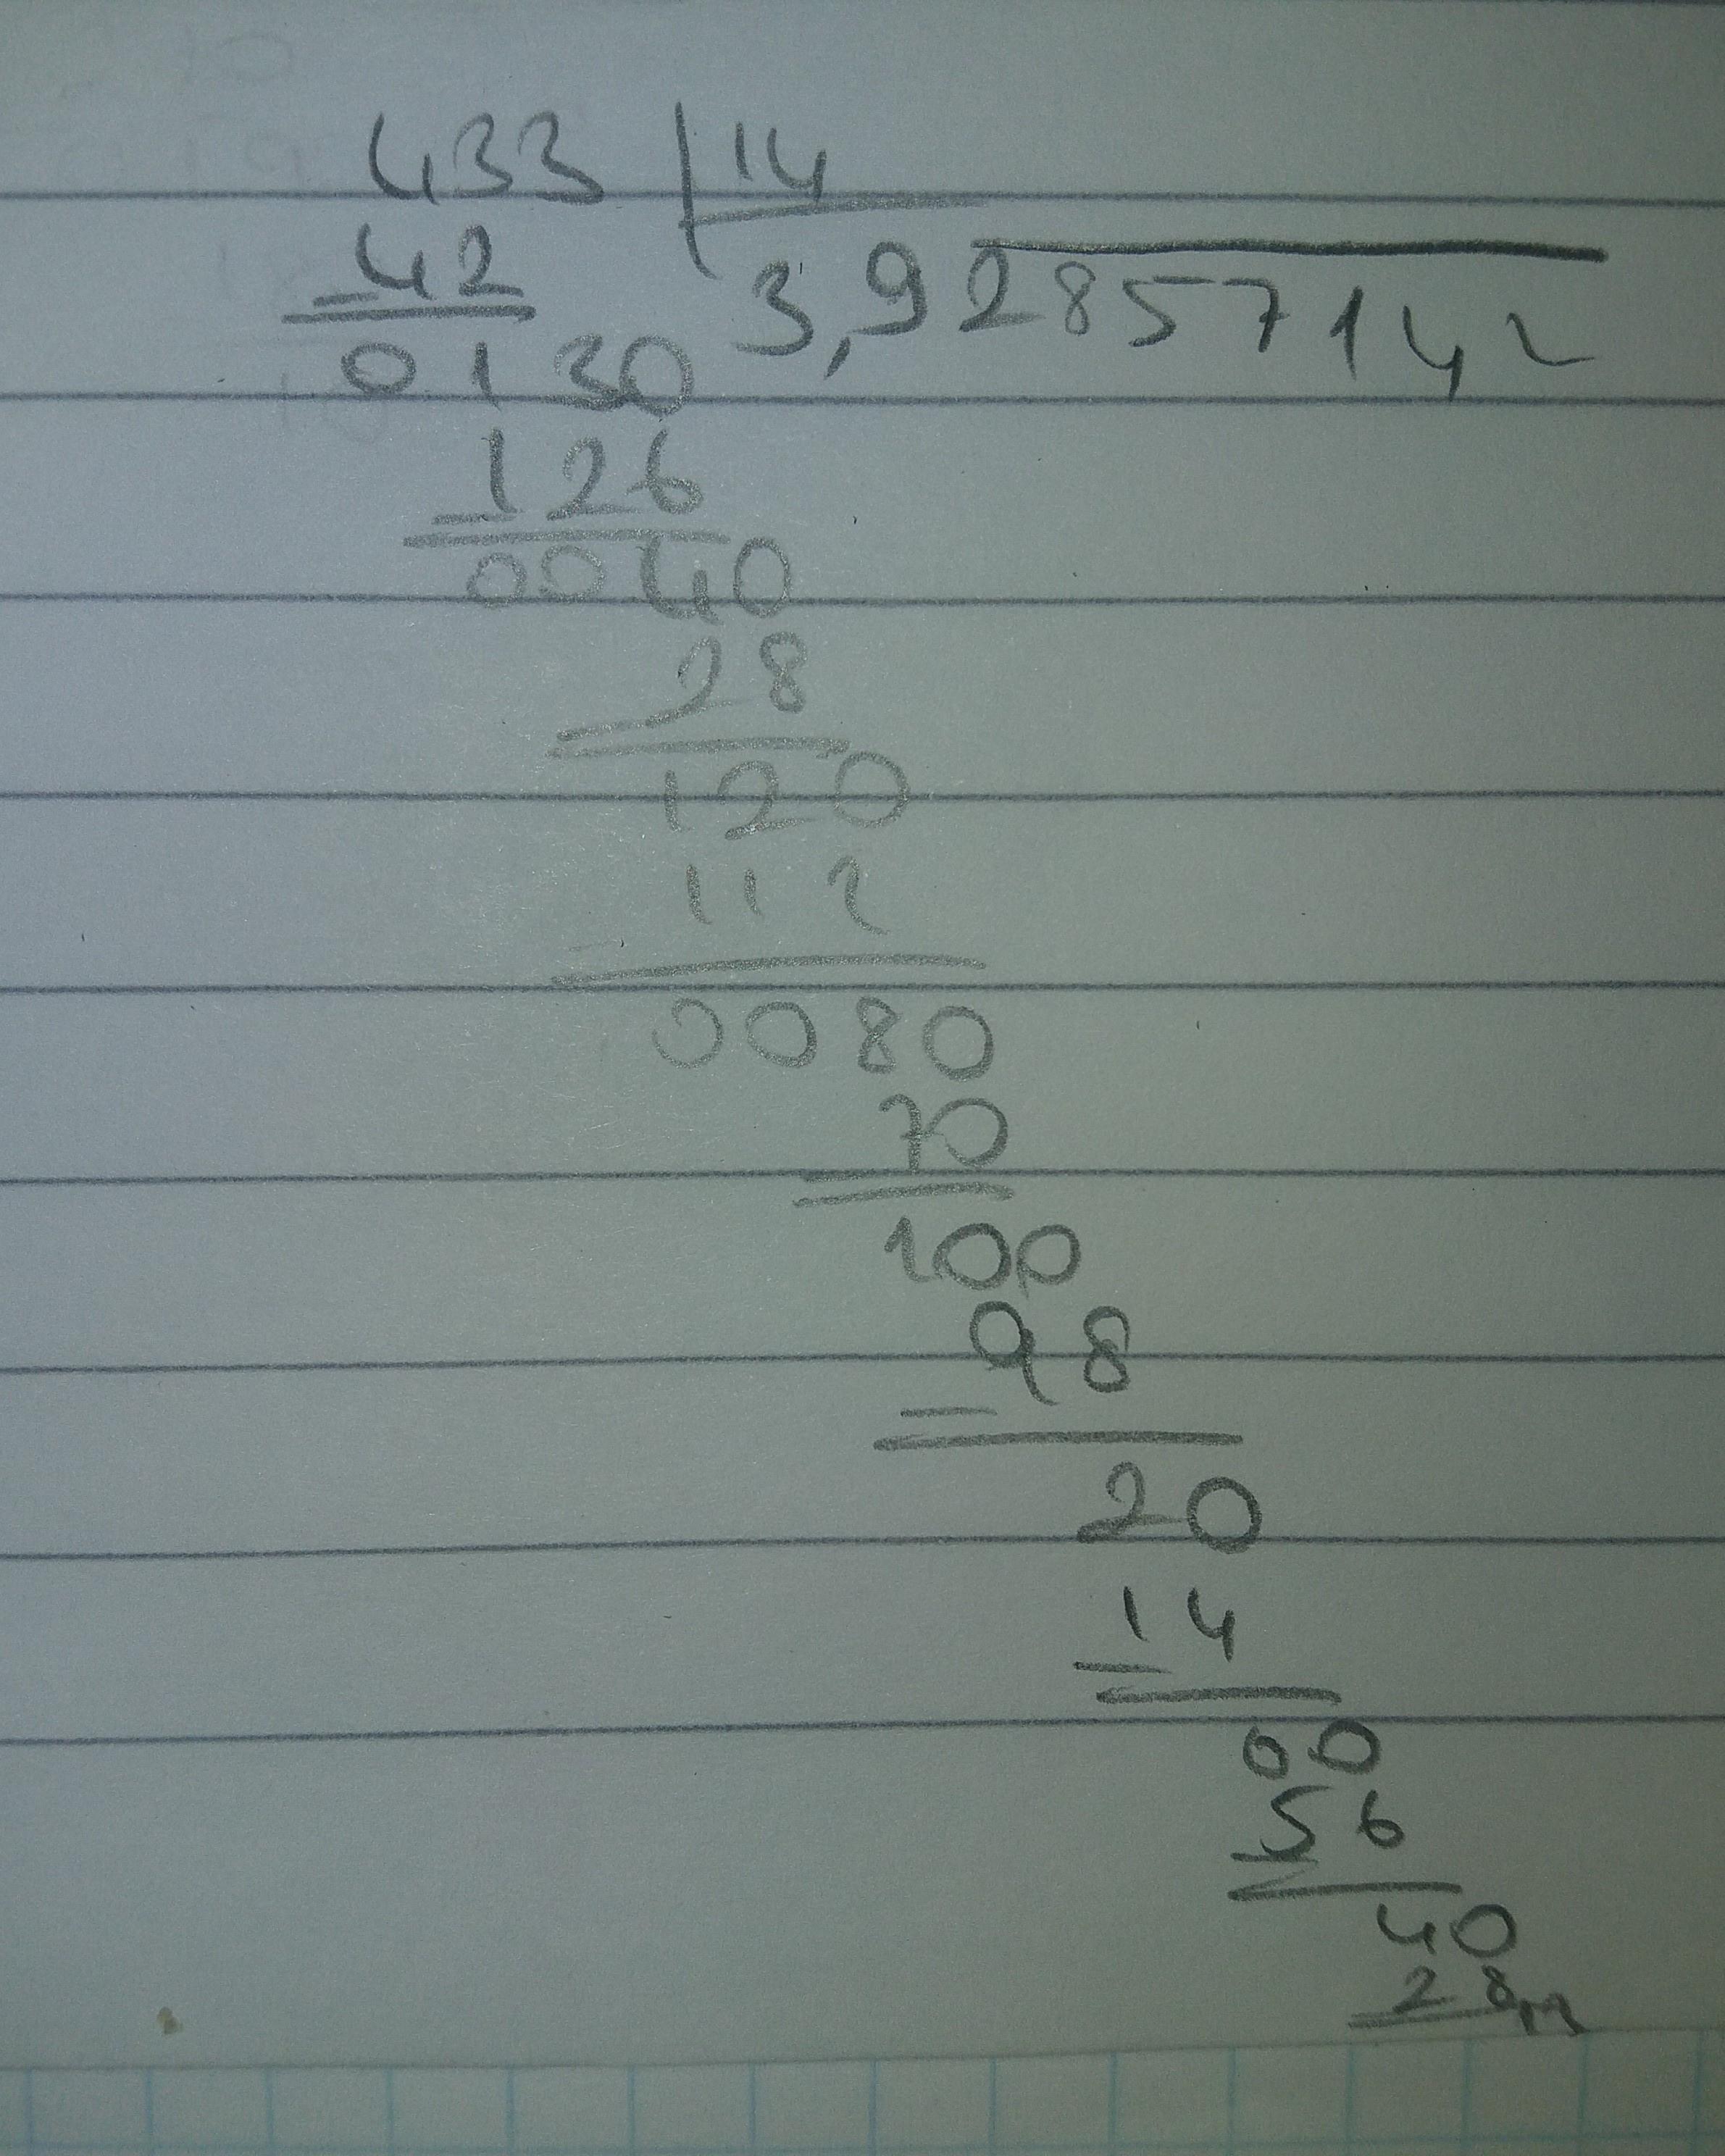 433 14
42 3,92857142
0130
126
0040
28
120
112
0080
70
100
98
20
14
00
56
40
28